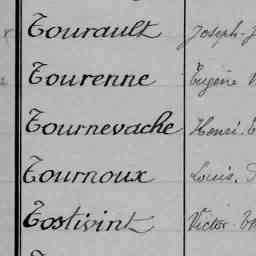 Tourault Joseph-J
Tourenne Eugène
Tournevache Henri-E
Tournoux Louis-
Tostivint Victor-